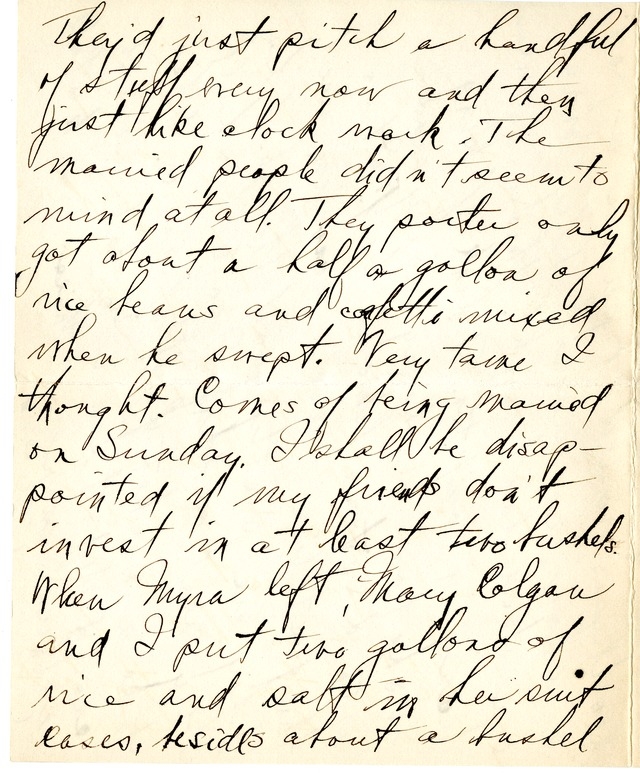 They'd just pitch a handful
of stuff every now and then
just like clock work. The
married people didn't seem to
mind at all. They porter only
got about a half a gallon of
rice beans and cofetti mixed
when he swept. Very tame I
thought. Comes of being married
on Sunday. I shall be disap-
pointed if my friends don't
invest in at least two bushels.
When Myra left, Mary Colgan
and I put two gallons of
rice and salt in her suit
cases, besides about a bushel